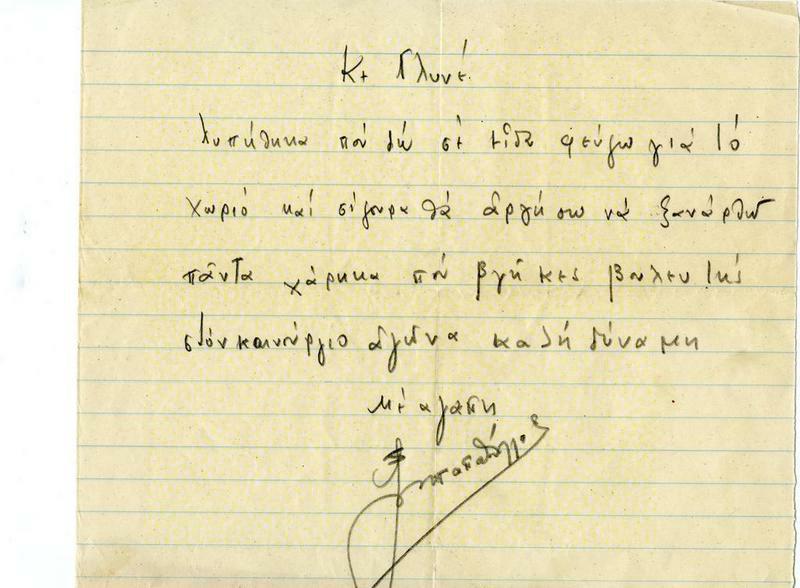 Κε Γλυνέ
Λυπήθηκα πού δέν σέ είδα φεύγω γιά τό
χωριό καί σίγουρα θά αργήσω νά ξανάρθω
πάντα χάρηκα πού βγήκες βουλευτής
στόν καινούργιο αγώνα καλή δύναμη
Μέ αγάπη